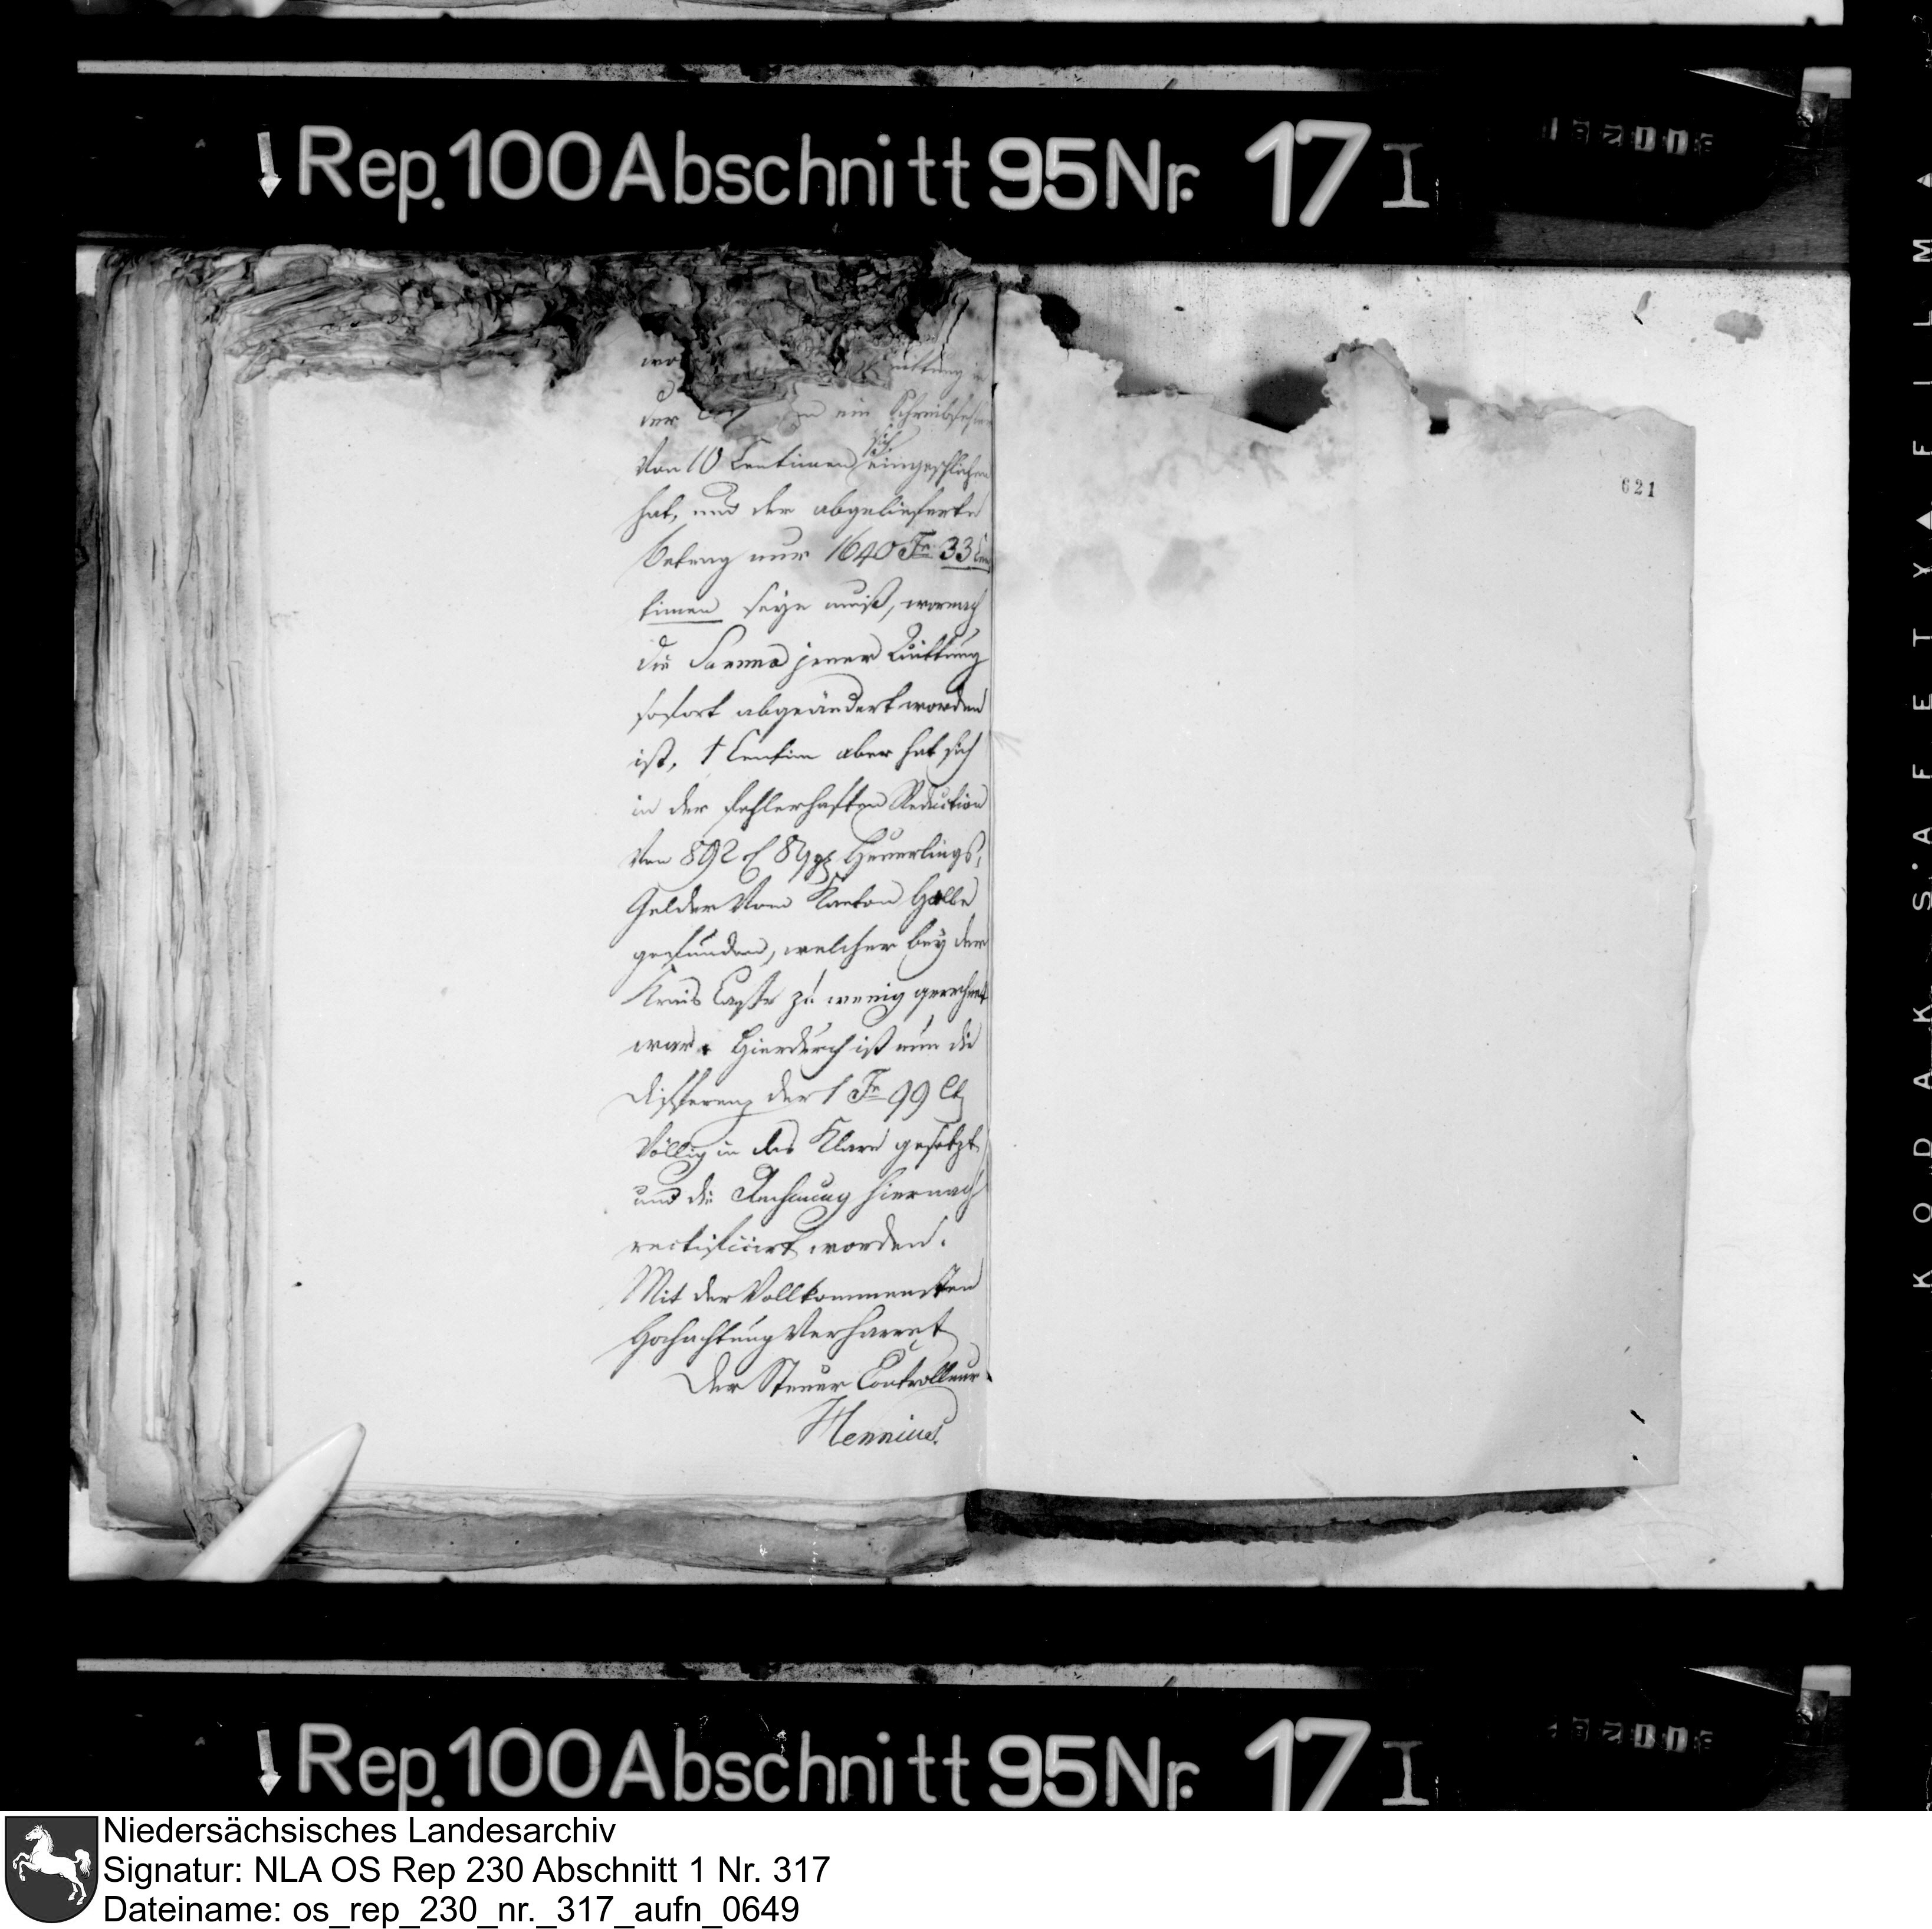 ↓ Rep. 100 Abschnitt 95 Nr. 17 I
der ein Schreibfehler
von 10 Centimen sich eingeschlichen
hat, und der abgelieferte
Betrag nur 1640 Fr 33 Cen
timen seyn muß, wornach
die Summa jener Quittung
sofort abgeändert worden
ist, 1 Centim aber hat sich
in der fehlerhaften Reduction
von 892 Heuerlings,
Gelder vom Kanton Halle
gefunden, welcher bey der
Kreis Casse zu wenig gerechnet
war. Hierdurch ist nun die
Differenz der 1 Fr 99 Ct
völlig in das Klare gesetzt
und die Rechnung hiernach
rectificirt worden.
Mit der Vollkommensten
Hochachtung Verharret
Der Steuer Controlleur
Hennius.
621
KODAK SAFETY FILM
↓ Rep. 100 Abschnitt 95 Nr. 17 I
Niedersächsisches Landesarchiv
Signatur: NLA OS Rep 230 Abschnitt 1 Nr. 317
Dateiname: os_rep_230_nr._317_aufn_0649